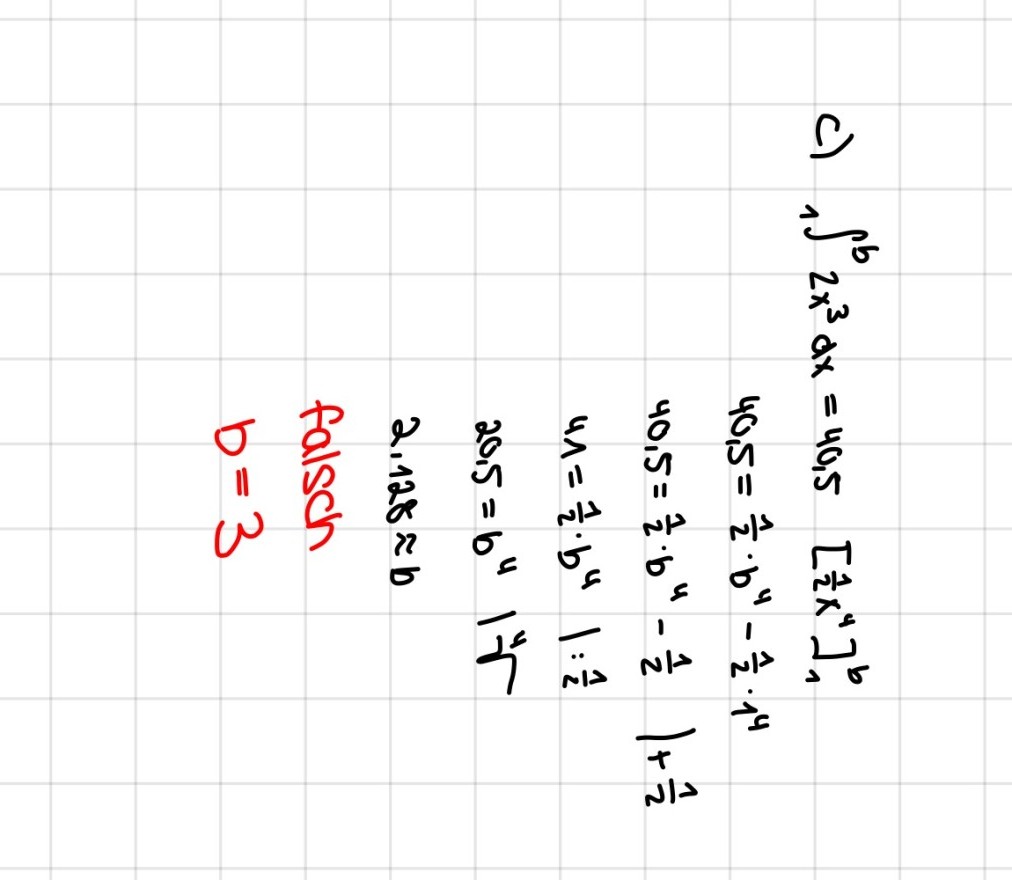 c) ₁∫ᵇ 2x³ dx = 40,5 [½x⁴]ᵇ₁
40,5 = ½·b⁴ - ½·1⁴
40,5 = ½·b⁴ - ½ |+½
41 = ½·b⁴ |:½
20,5 = b⁴ |⁴√
2,128 ≈ b
falsch
b = 3